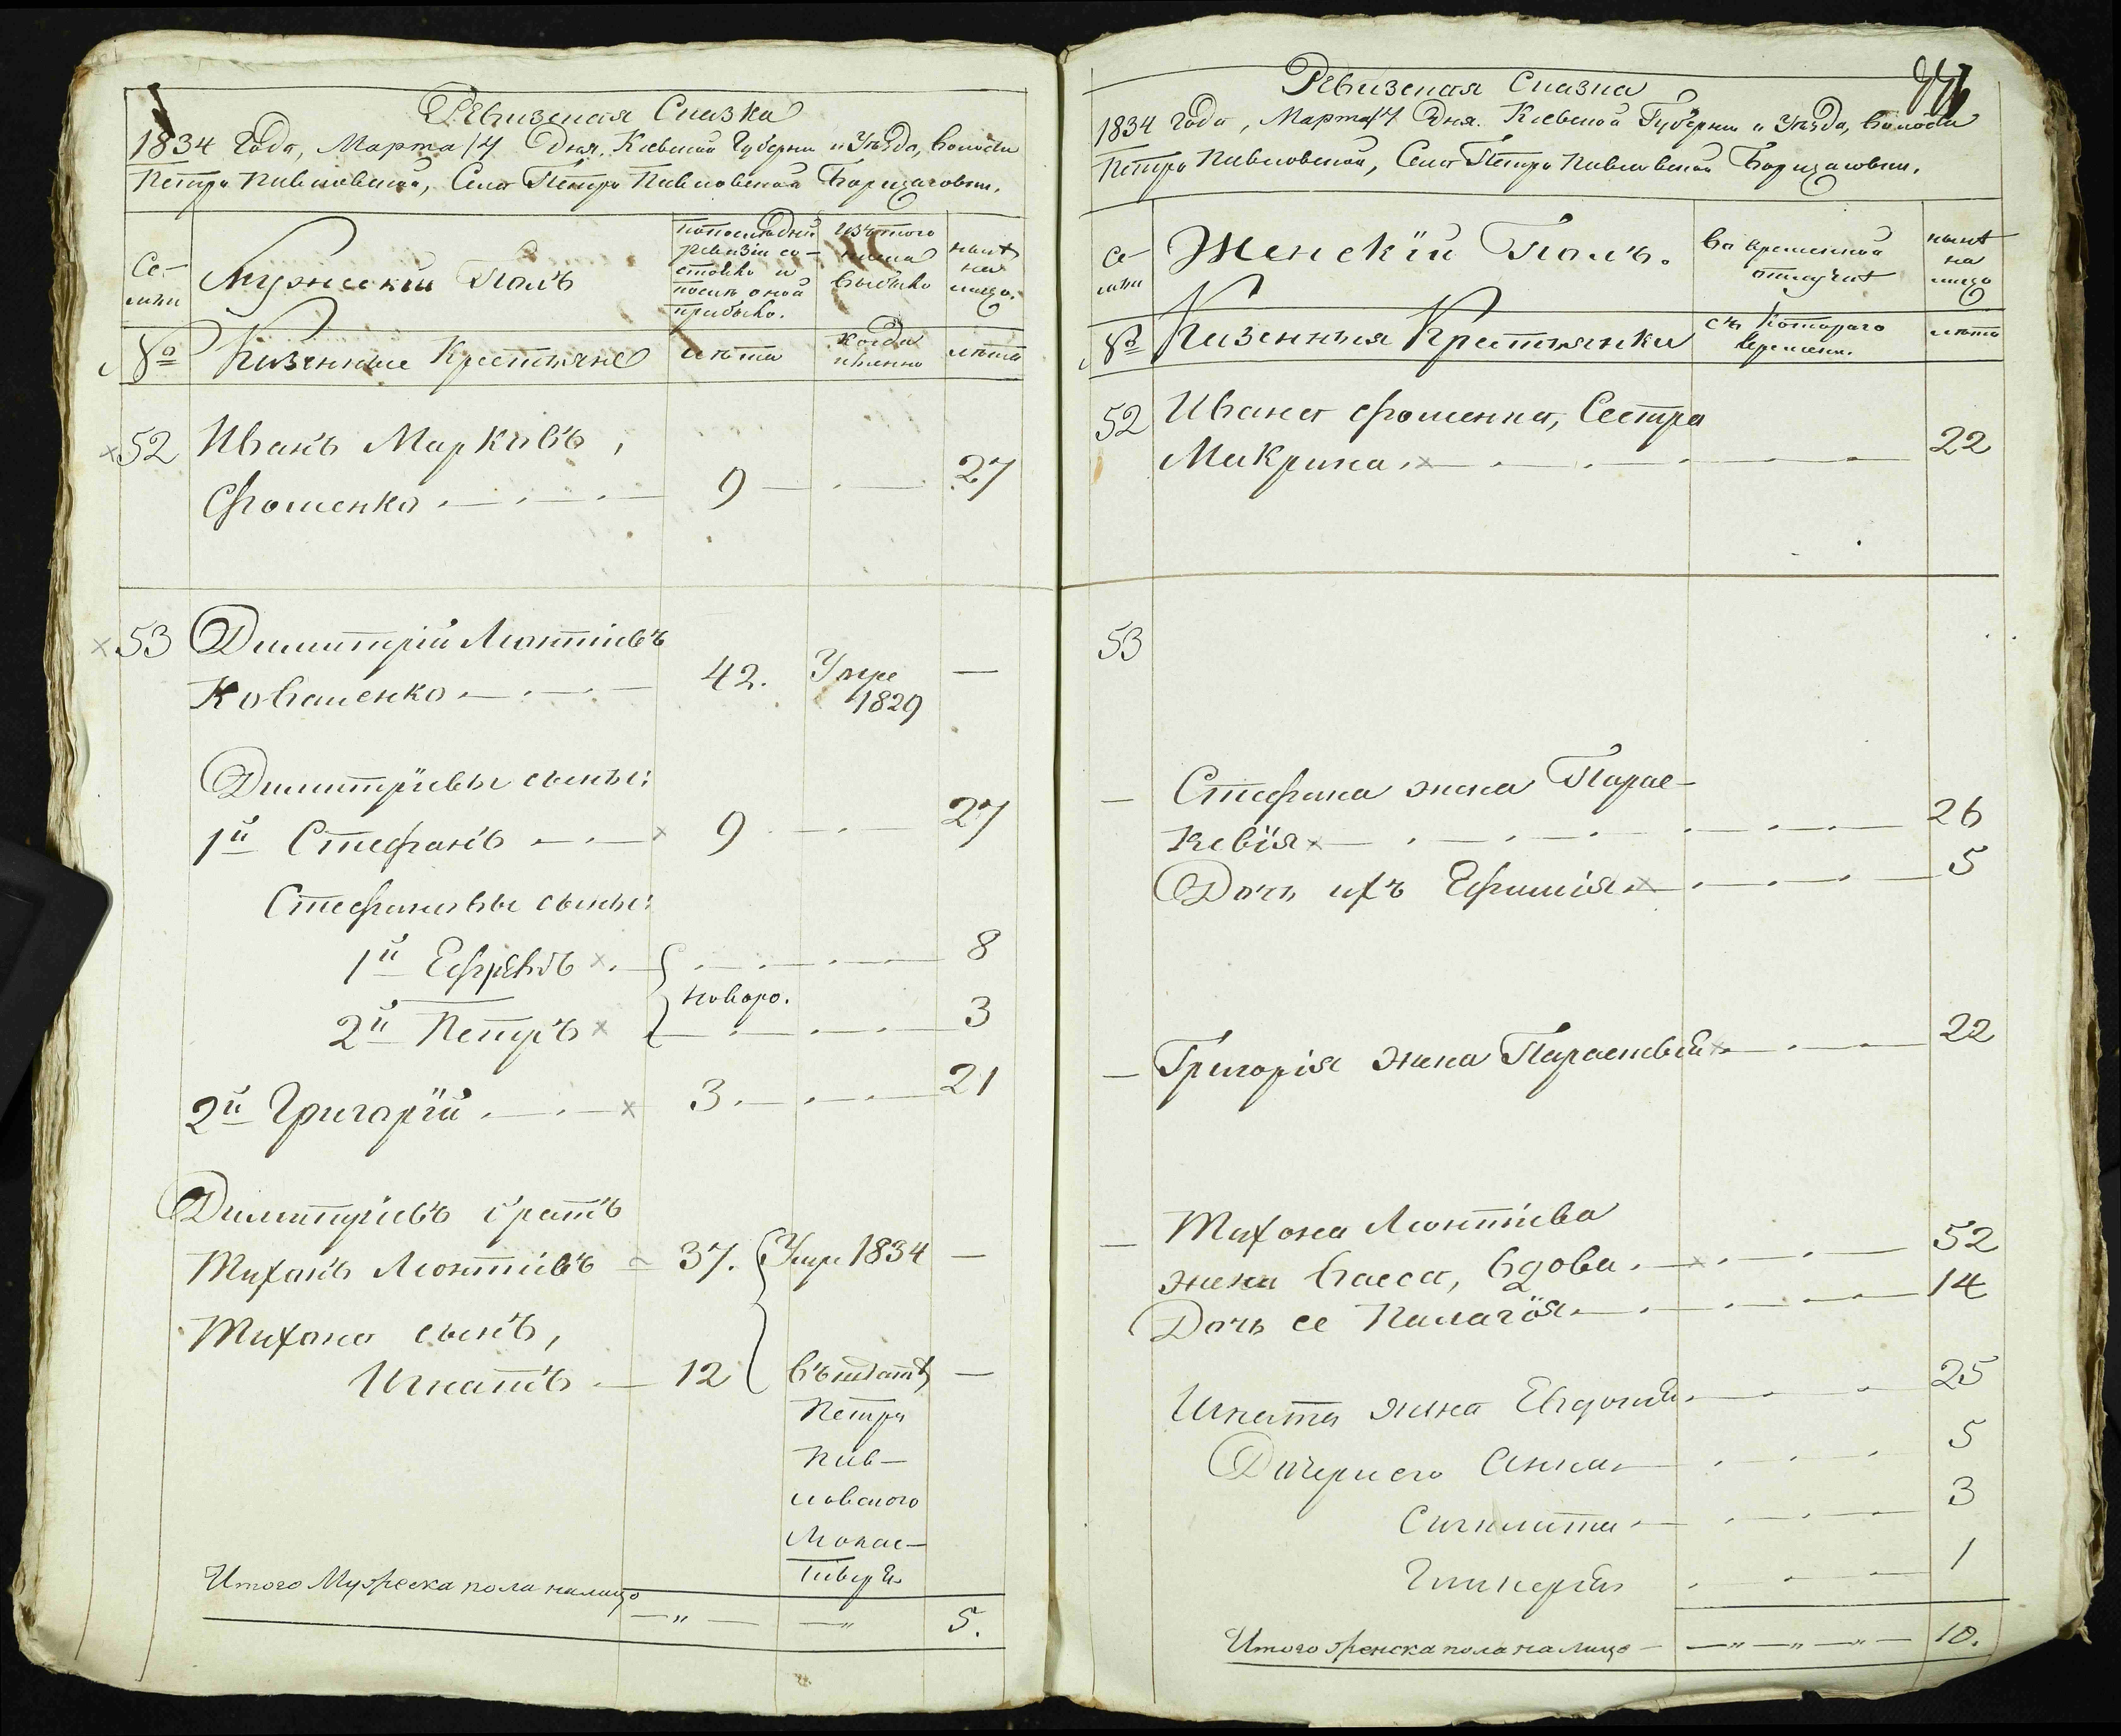 Ревизская Сказка
1834 Года, Марта 14 Дня, Киевской Губерни и Уѣзда, волости
Петро Павловской, Села Петро Павловской Борщаговки.
Се-
мьи
Мужеский Полъ
попоследней
ревизіи со-
стояло и
послѣ оной
прибыло.
Изъ того
числа
выбыло
нынѣ
на
лицо.
№
Казенные Крестьяне
лѣта
Когда
именно
лѣта
52
Иванъ Марковъ,
Фоменко
9
27
53
Димитрій Леонтіевъ
Коваленко
42.
Умре
1829
Димитріевы сыны:
1й Стефанъ
9
27
Стефановы сыны:
1й Ефремъ
8
новоро.
2й Петръ
3
2й Григорій
3
21
Димитріевъ братъ
Тихонъ Леонтіевъ
37.
Умре 1834
Тихона сынъ,
Игнатъ
12
въ штатѣ
Петра
Пав-
ловского
Монас-
Итого Мужеска пола на лицо
5.
Ревизская Сказка
1834 Года, Марта 14 Дня. Киевской Губерни и Уѣзда, волости
Петро Павловской, Села Петро Павловской Борщаговки.
Се-
мьи
Женскій Полъ.
Во временной
отлучкѣ
нынѣ
на
лицо
№
Казенныя Крестьянки
съ Котораго
времени.
лѣта
52
Ивана Фоменка, Сестра
Макрина
22
53
Стефана жена Парас-
кевія
26
Дочь ихъ Ефимія
5
Григорія жена Параскевія
22
Тихона Леонтіева
жена Васса, вдова
52
Дочь ее Палагія
14
Игната жена Евдокія
25
Дочери его Анна
5
Сигклита
3
Гликерія
1
Итого женска пола на лицо
10.